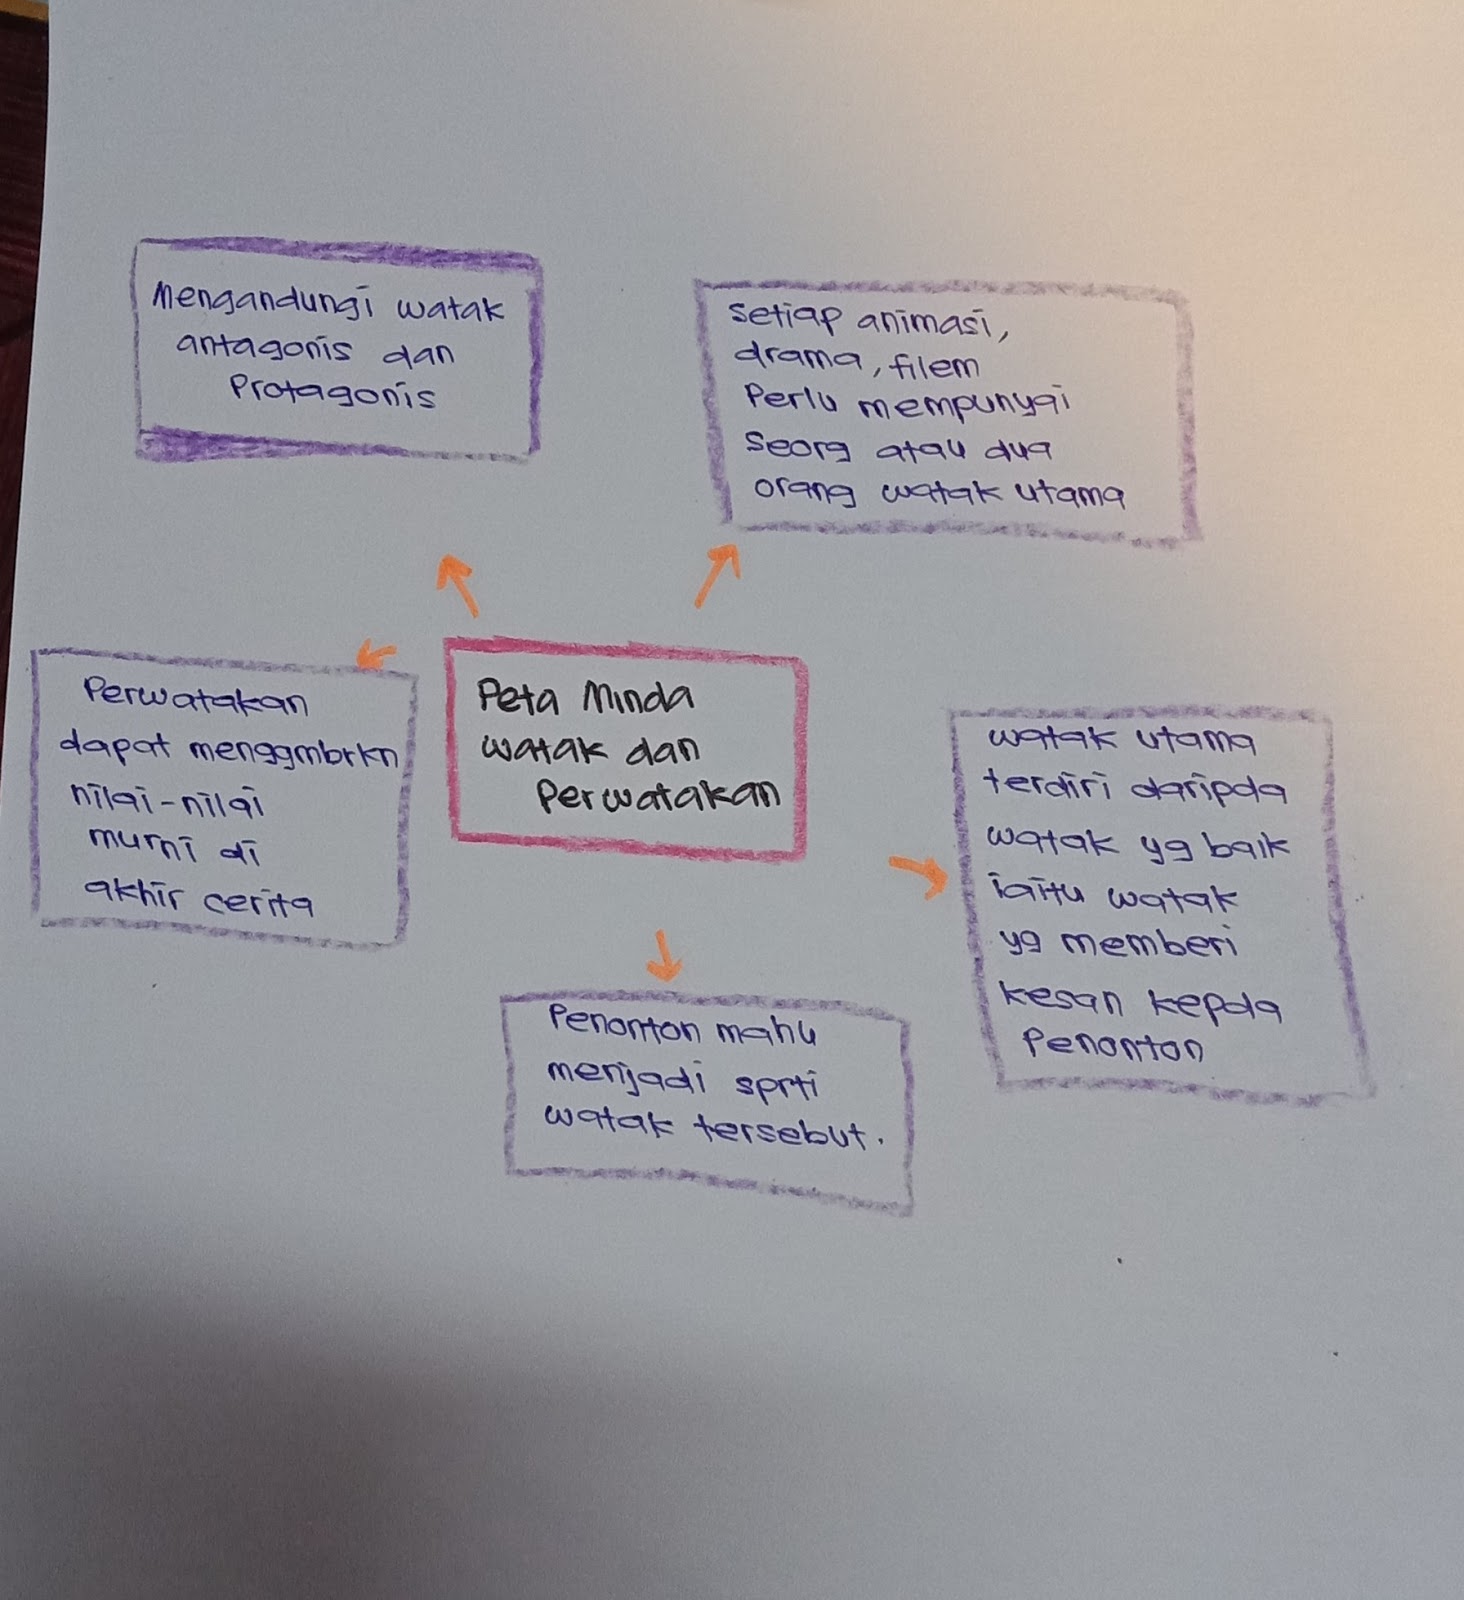 Mengandungi watak
antagonis dan
Protagonis
setiap animasi,
drama, filem
Perlu mempunyai
seorg atau dua
orang watak utama
Perwatakan
dapat menggmbrkn
nilai-nilai
murni di
akhir cerita
Peta Minda
watak dan
Perwatakan
watak utama
terdiri daripda
watak yg baik
iaitu watak
yg memberi
kesan kepda
Penonton
Penonton mahu
menjadi sprti
watak tersebut.